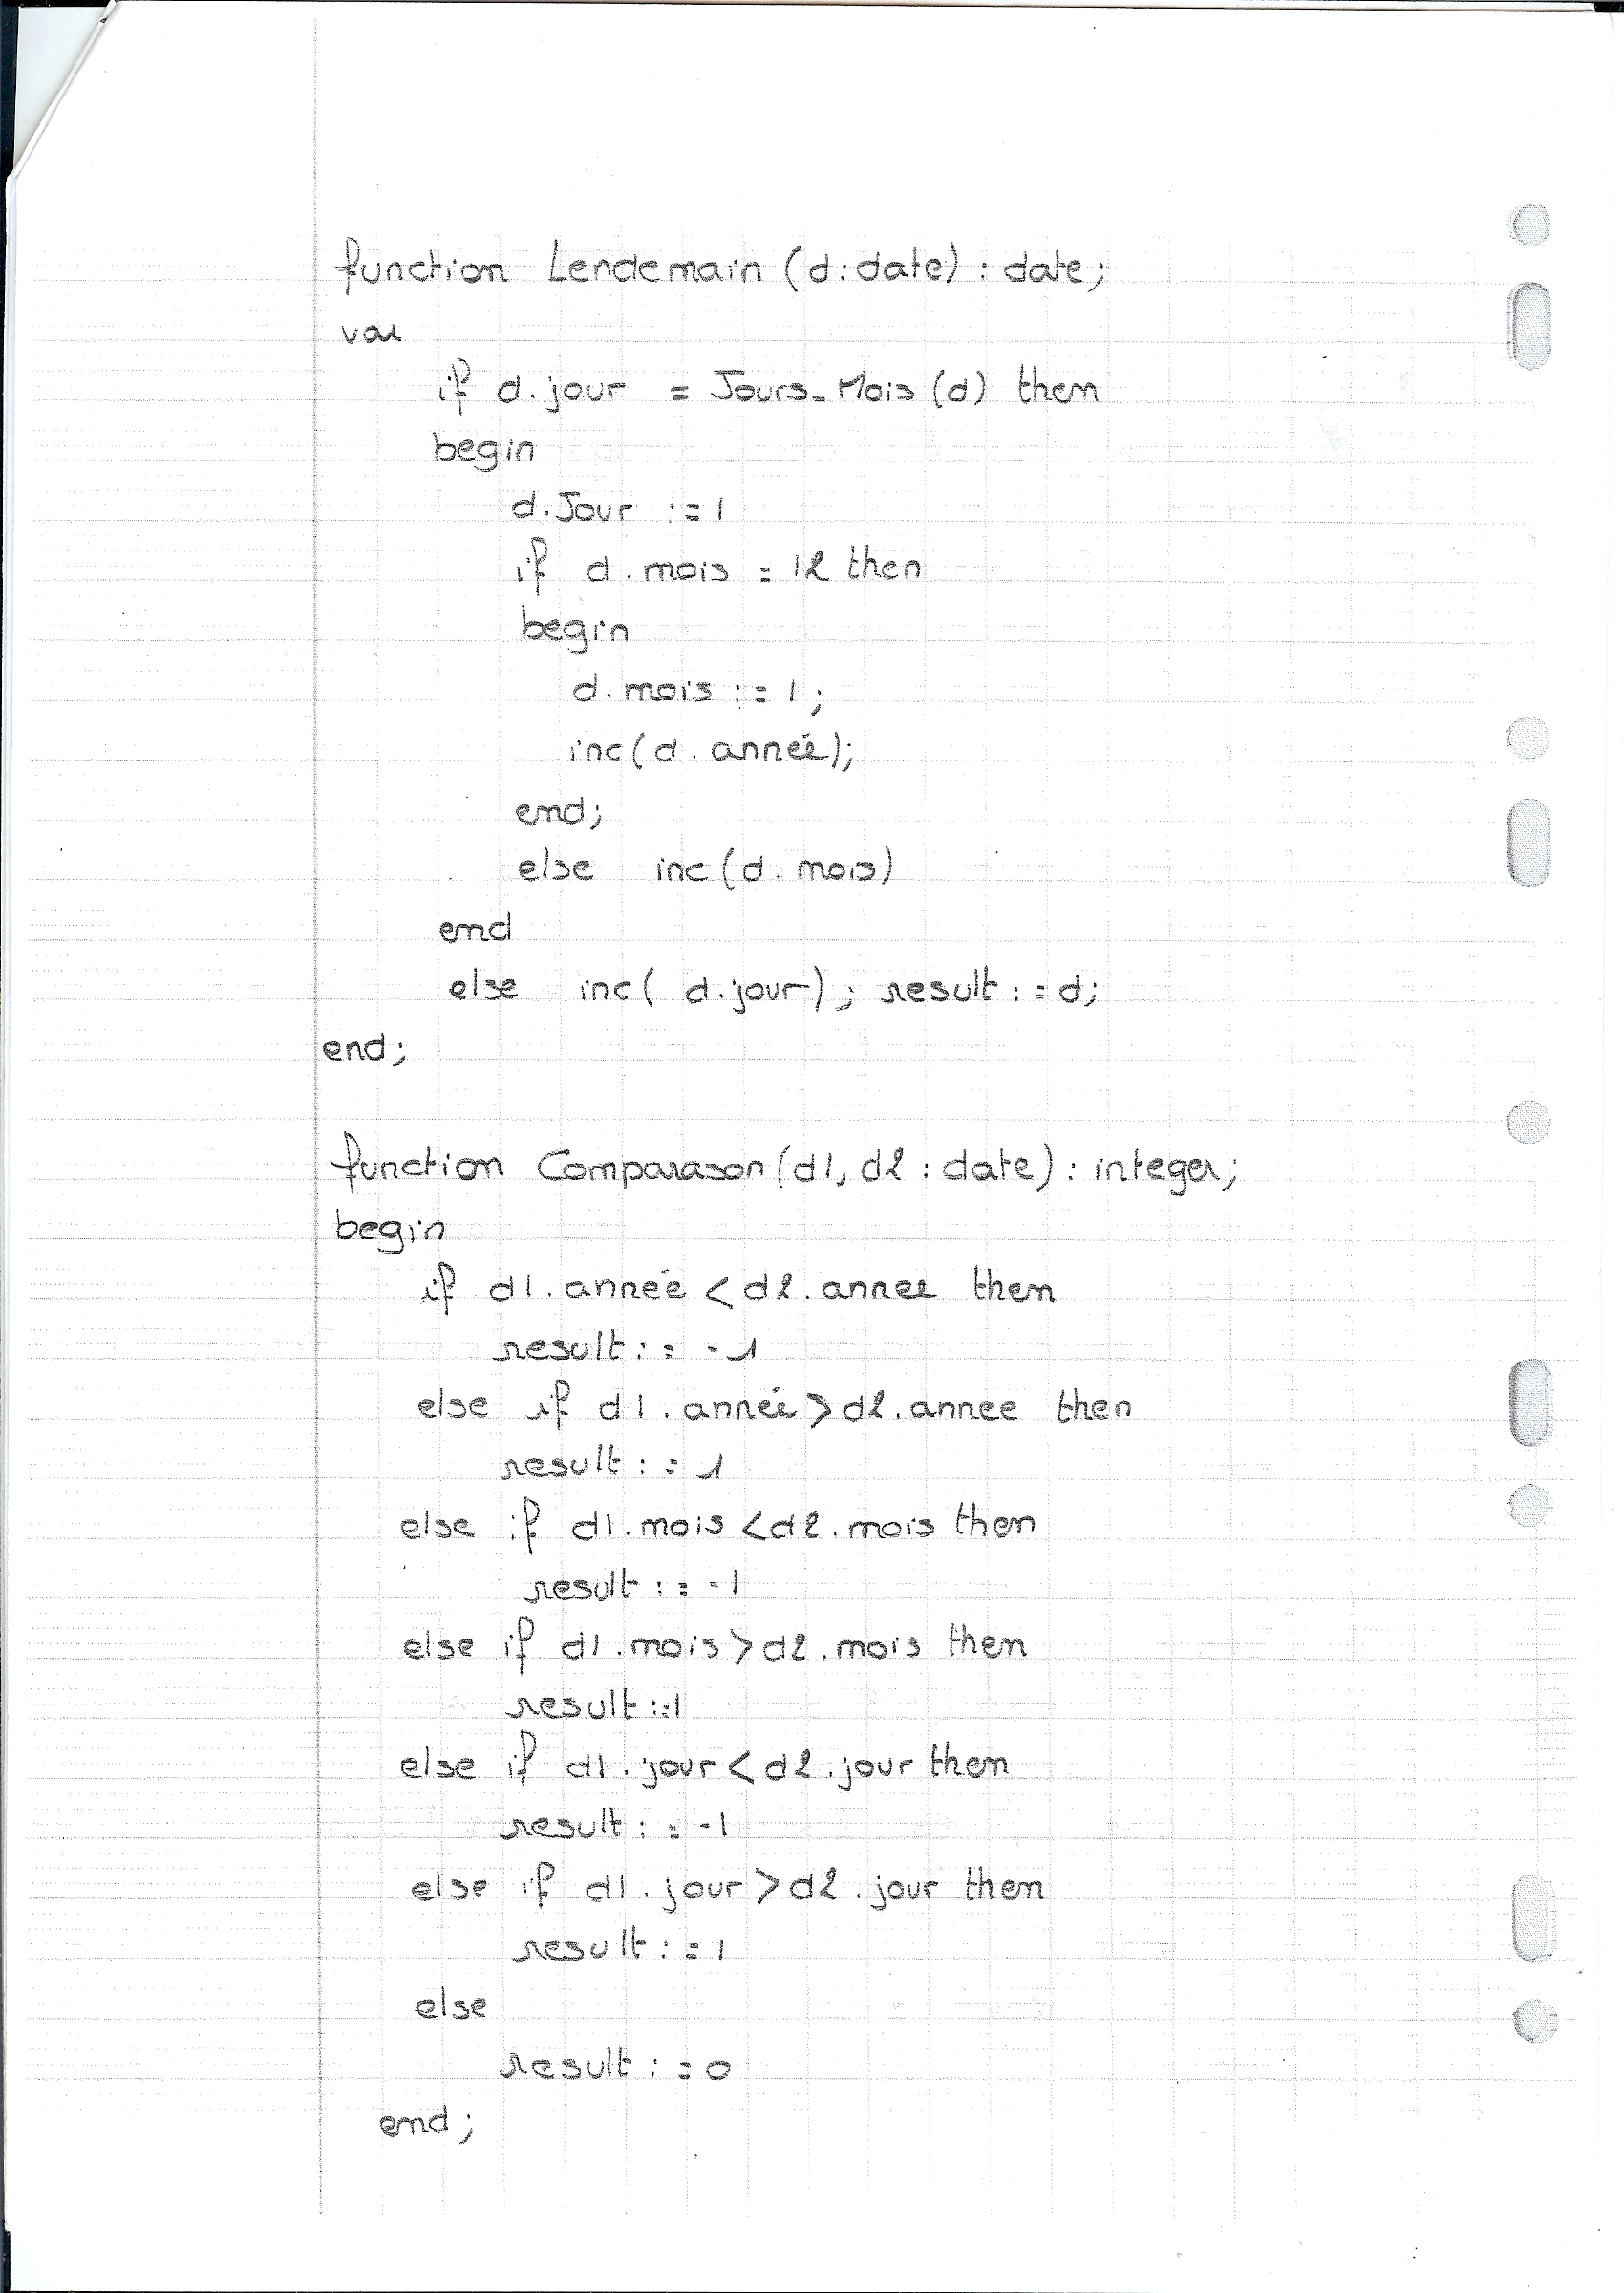 function Lendemain (d:date) : date;
var
if d.jour = Jours_Mois (d) then
begin
d.Jour := 1
if d.mois = 12 then
begin
d.mois := 1;
inc(d.année);
end;
else inc(d.mois)
end
else inc( d.jour); result := d;
end;
function Comparason(d1, d2 : date) : integer;
begin
if d1.année < d2.annee then
result := -1
else if d1.année > d2.annee then
result := 1
else if d1.mois < d2.mois then
result := -1
else if d1.mois > d2.mois then
result :=1
else if d1.jour < d2.jour then
result := -1
else if d1.jour > d2.jour then
result := 1
else
result := 0
end;